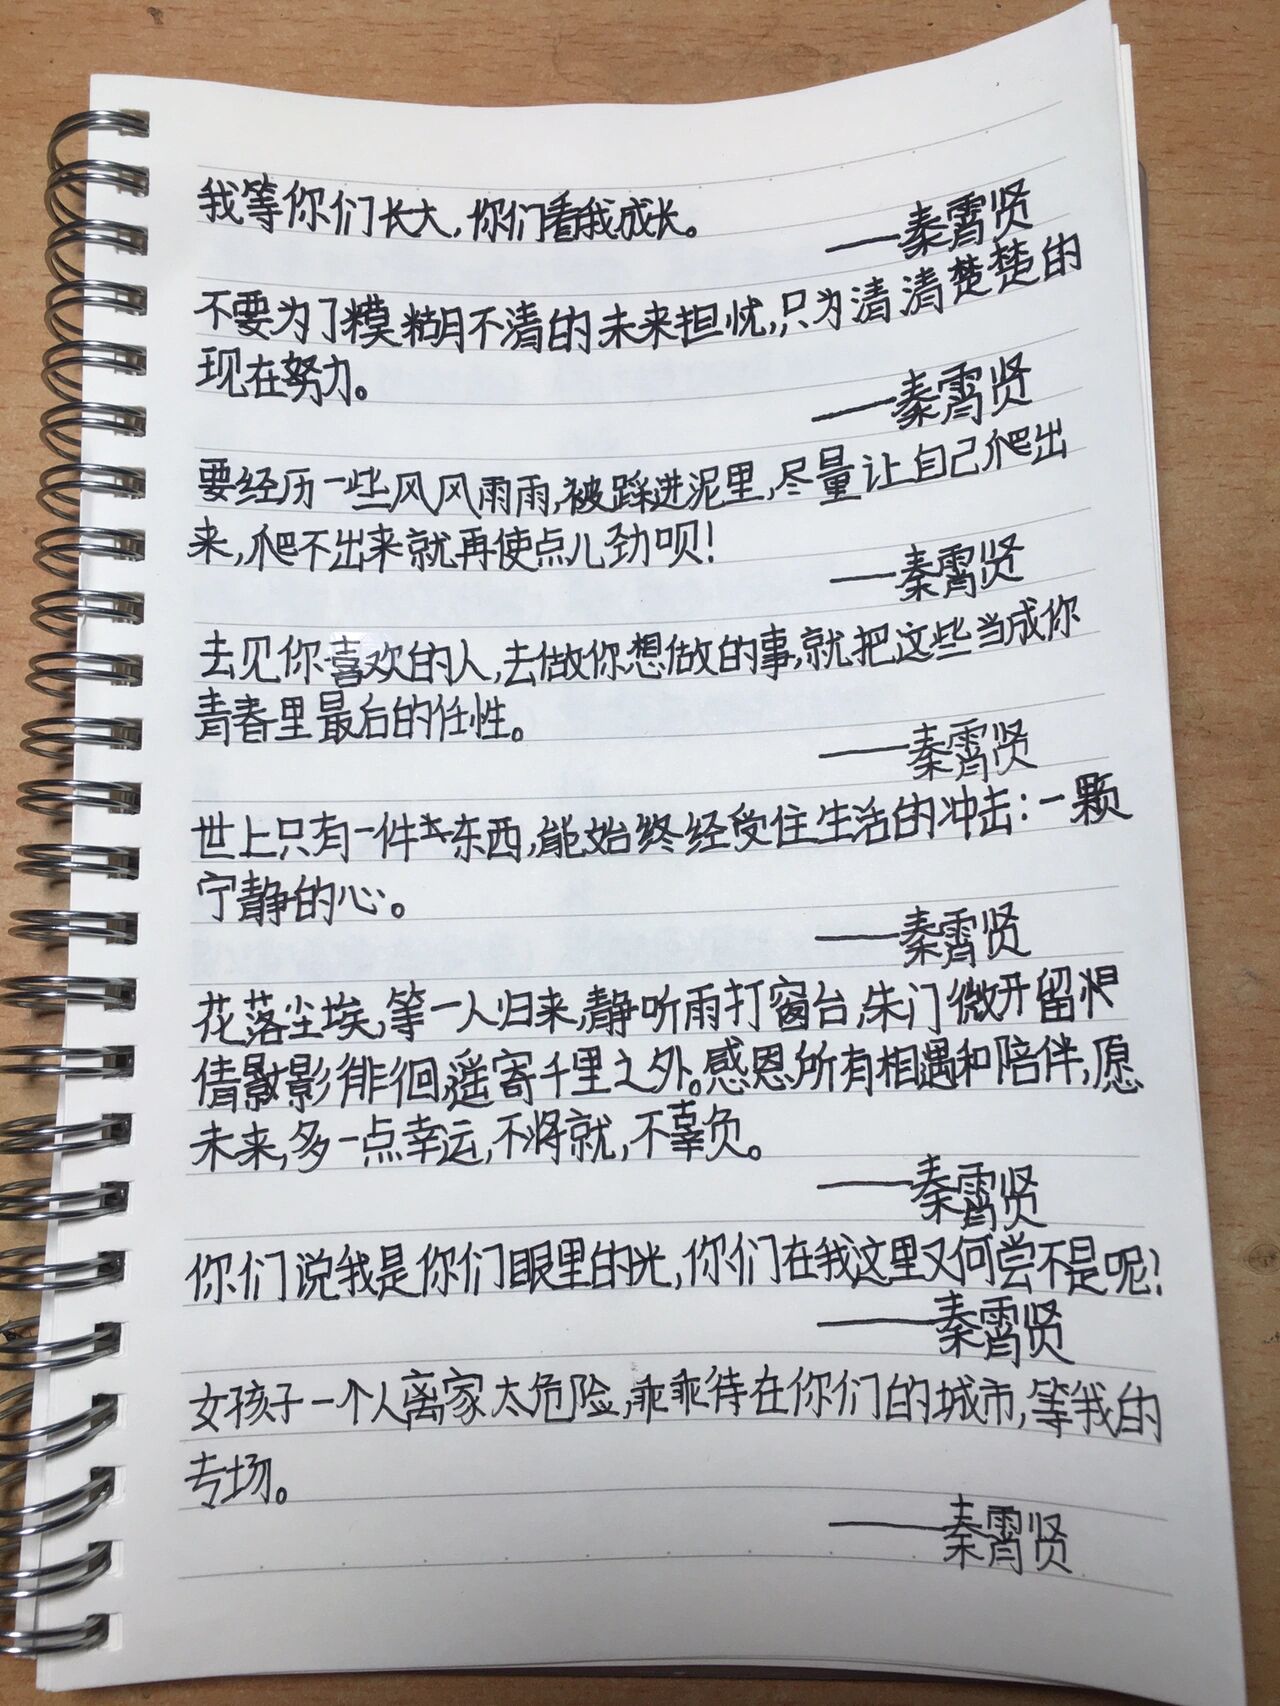 我等你们长大,你们看我成长。
——秦霄贤
不要为了糢糊不清的未来担忧,只为清清楚楚的
现在努力。
——秦霄贤
要经历一些风风雨雨,被踩进泥里,尽量让自己爬出
来,爬不出来就再使点儿劲呗!
——秦霄贤
去见你喜欢的人,去做你想做的事,就把这些当成你
青春里最后的任性。
——秦霄贤
世上只有一件东西,能始终经受住生活的冲击:一颗
宁静的心。
——秦霄贤
花落尘埃,等一人归来,静听雨打窗台,朱门微开留
倩影徘徊,遥寄千里之外。感恩所有相遇和陪伴,愿
未来,多一点幸运,不将就,不辜负。
——秦霄贤
你们说我是你们眼里的光,你们在我这里又何尝不是呢?
——秦霄贤
女孩子一个人离家太危险,乖乖待在你们的城市,等我的
专场。
——秦霄贤